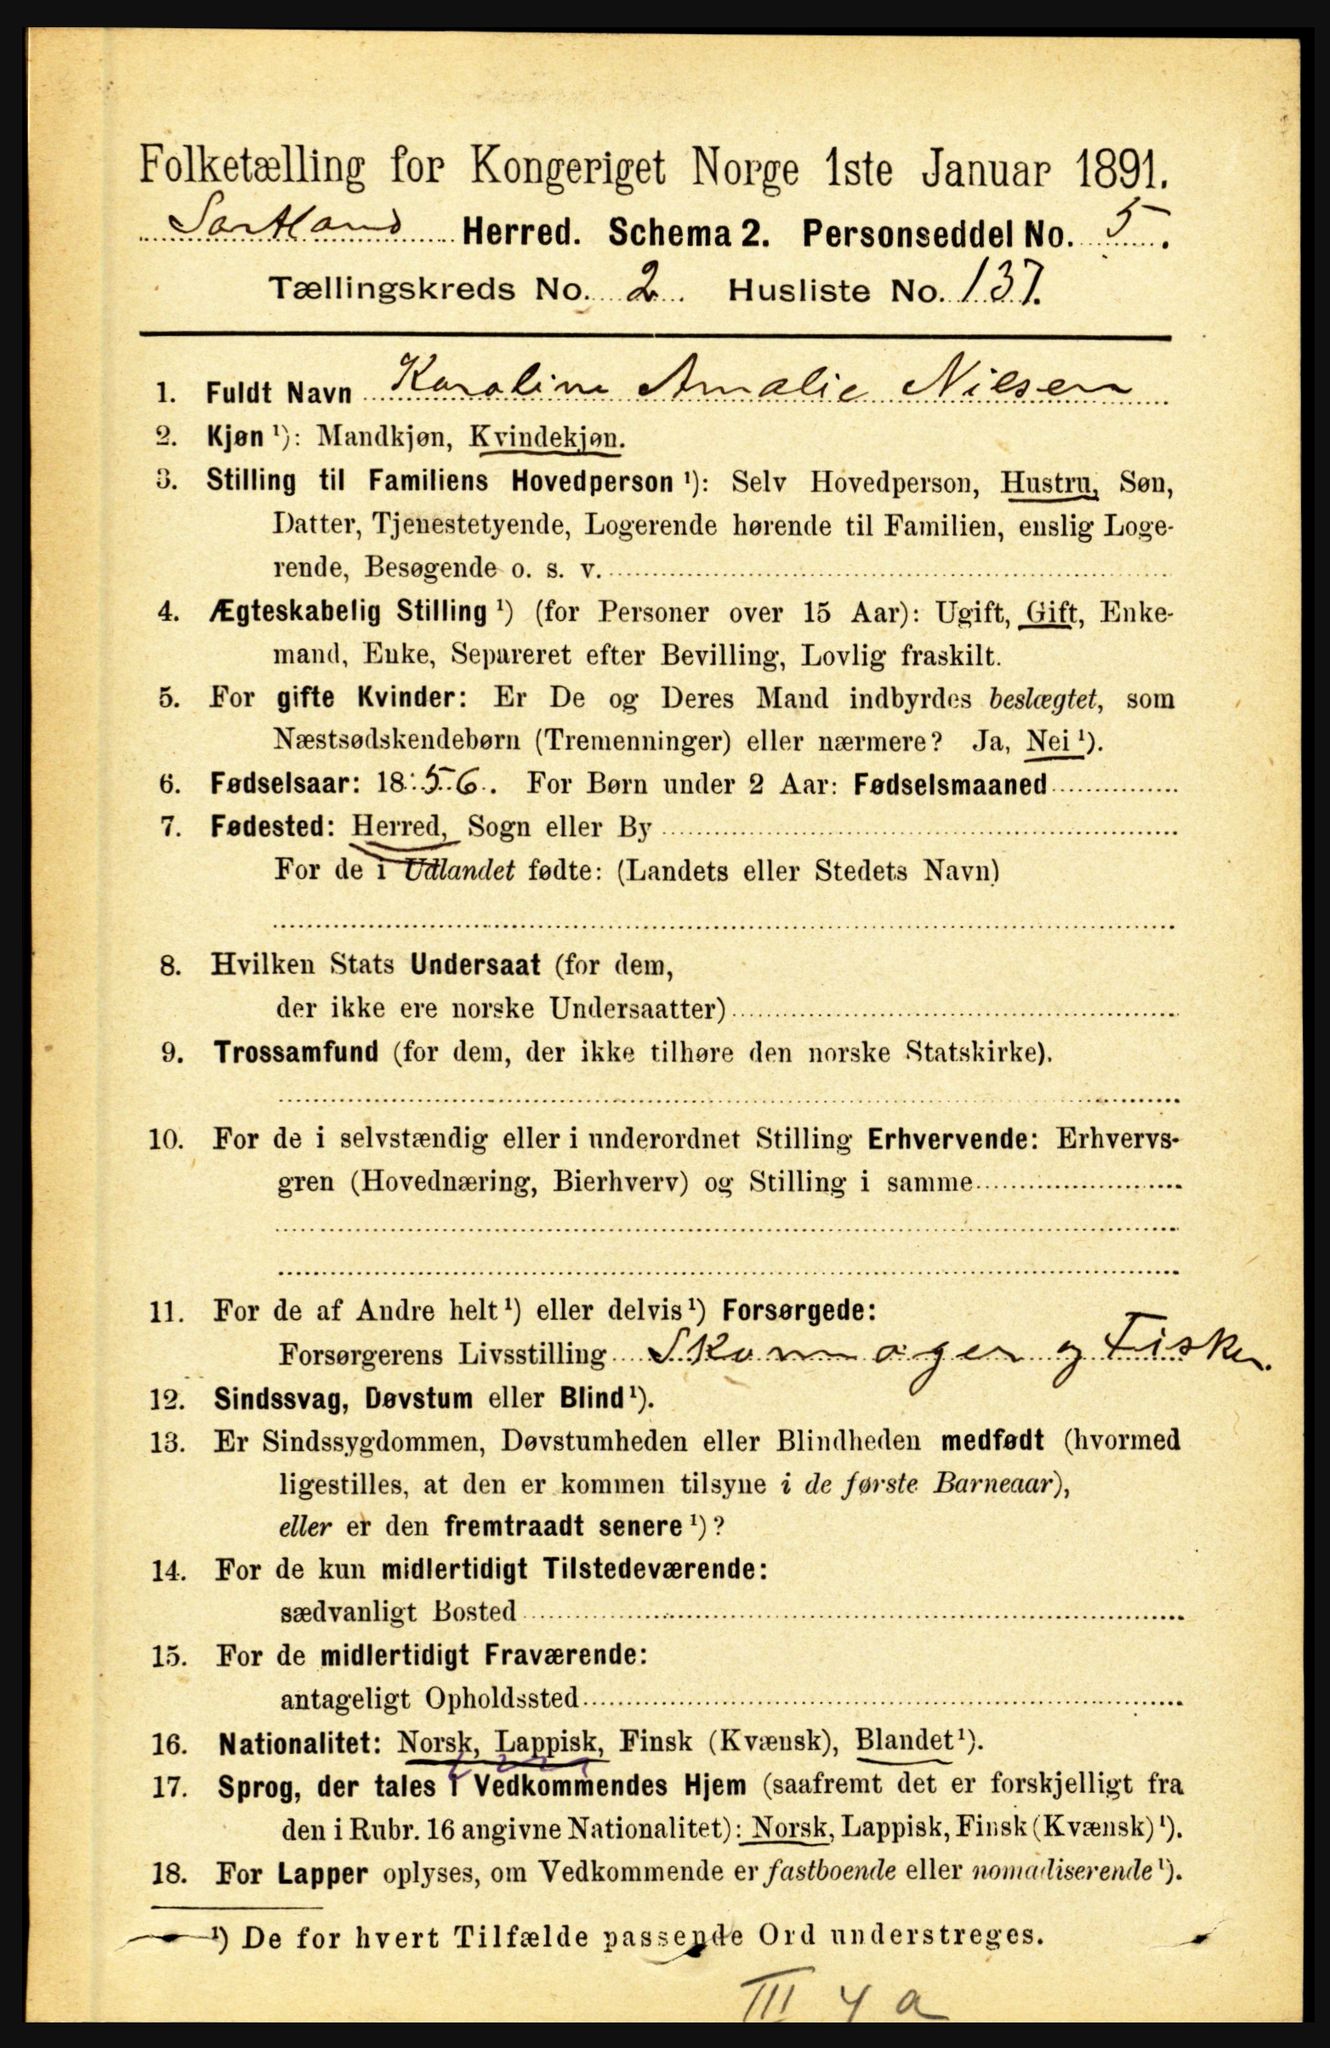 Folketælling for Kongeriget Norge 1ste Januar 1891.
Sortland Herred. Schema 2. Personseddel No. 5.
Tællingskreds No. 2. Husliste No. 137.
1. Fuldt Navn Karoline Amalie Nilsen
2. Kjøn ¹): Mandkjøn, Kvindekjøn.
3. Stilling til Familiens Hovedperson ¹): Selv Hovedperson, Hustru, Søn,
Datter, Tjenestetyende, Logerende hørende til Familien, enslig Loge-
rende, Besøgende o. s. v.
4. Ægteskabelig Stilling ¹) (for Personer over 15 Aar): Ugift, Gift, Enke-
mand, Enke, Separeret efter Bevilling, Lovlig fraskilt.
5. For gifte Kvinder: Er De og Deres Mand indbyrdes beslægtet, som
Næstsødskendebørn (Tremenninger) eller nærmere? Ja, Nei ¹).
6. Fødselsaar: 1856. For Børn under 2 Aar: Fødselsmaaned
7. Fødested: Herred, Sogn eller By
For de i Udlandet fødte: (Landets eller Stedets Navn)
8. Hvilken Stats Undersaat (for dem,
der ikke ere norske Undersaatter)
9. Trossamfund (for dem, der ikke tilhøre den norske Statskirke).
10. For de i selvstændig eller i underordnet Stilling Erhvervende: Erhvervs-
gren (Hovednæring, Bierhverv) og Stilling i samme
11. For de af Andre helt ¹) eller delvis ¹) Forsørgede:
Forsørgerens Livsstilling Skomager og Fisker.
12. Sindssvag, Døvstum eller Blind ¹).
13. Er Sindssygdommen, Døvstumheden eller Blindheden medfødt (hvormed
ligestilles, at den er kommen tilsyne i de første Barneaar),
eller er den fremtraadt senere ¹)?
14. For de kun midlertidigt Tilstedeværende:
sædvanligt Bosted
15. For de midlertidigt Fraværende:
antageligt Opholdssted
16. Nationalitet: Norsk, Lappisk, Finsk (Kvænsk), Blandet ¹).
17. Sprog, der tales i Vedkommendes Hjem (saafremt det er forskjelligt fra
den i Rubr. 16 angivne Nationalitet): Norsk, Lappisk, Finsk (Kvænsk) ¹).
18. For Lapper oplyses, om Vedkommende er fastboende eller nomadiserende ¹).
¹) De for hvert Tilfælde passende Ord understreges.
III 4 a